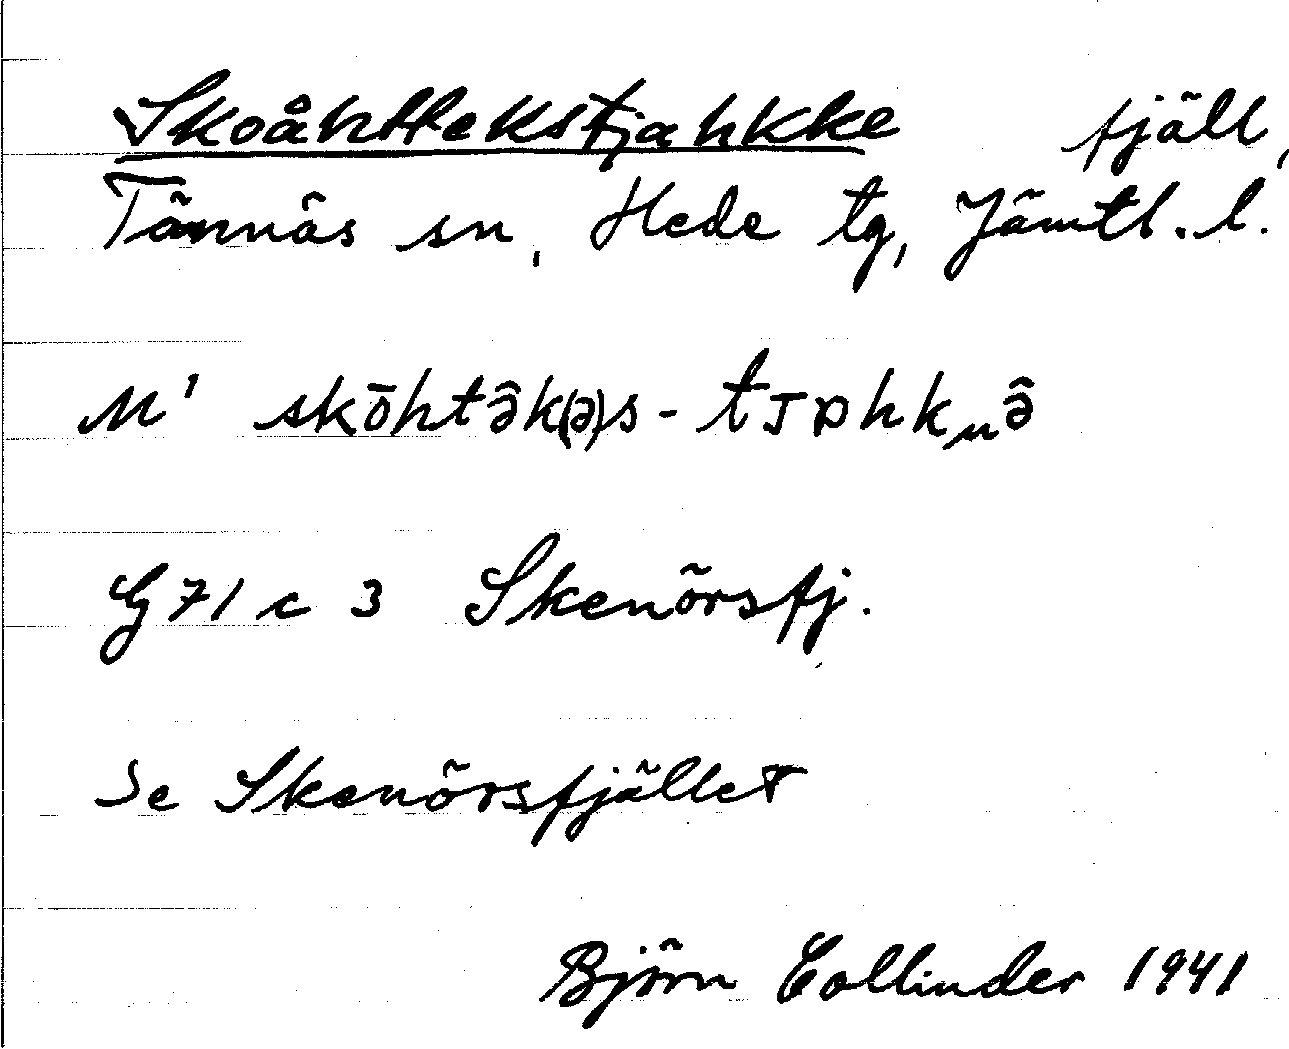 Skoåhttekstjahkke fjäll,
Tännäs sn, Hede tg, Jämtl. l.
M' skōhtə̂k(ə)s-
G 71 c 3 Skenörsfj.
Se Skenörsfjället
Björn Collinder 1941